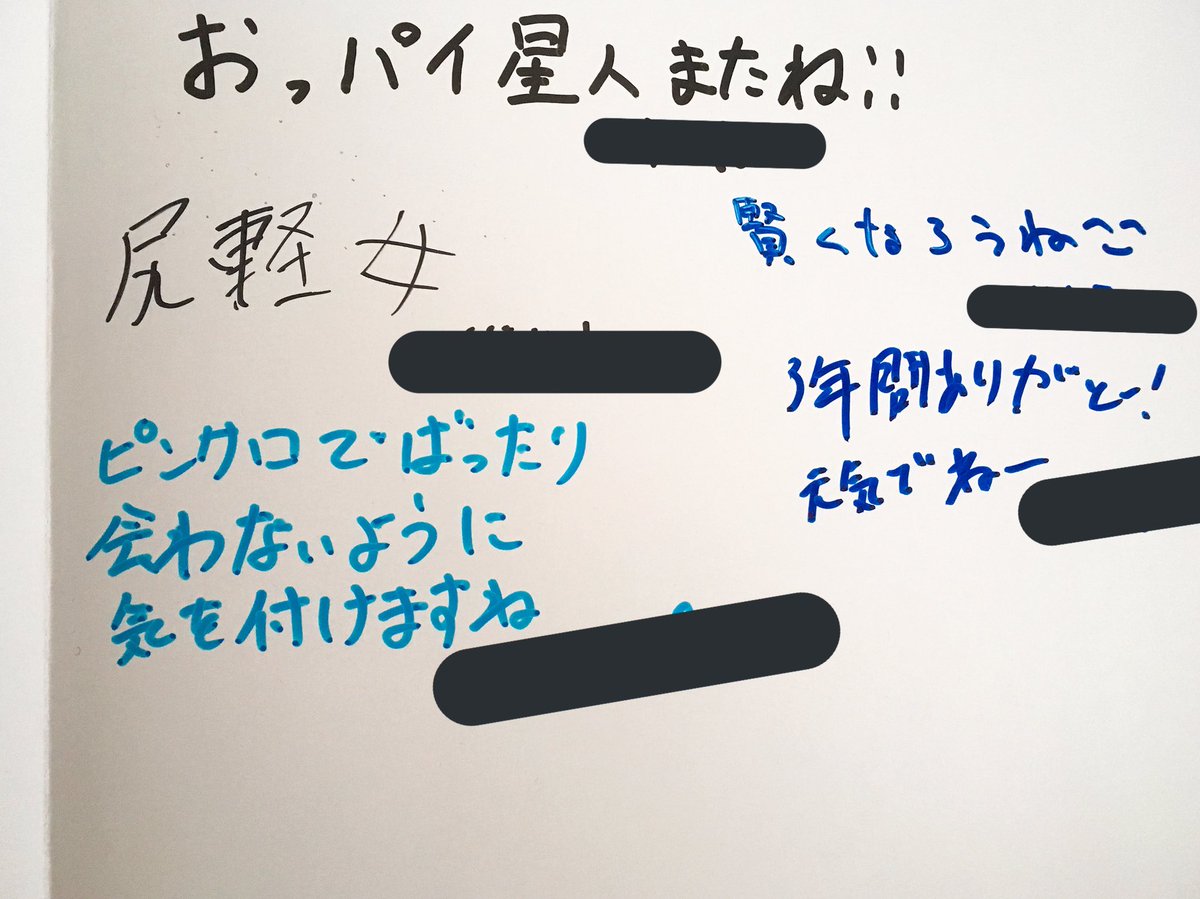 おっパイ星人またね!!
尻軽女
賢くなろうね^^
3年間ありがとー!
元気でねー
ピンクロでばったり
会わないように
気を付けますね